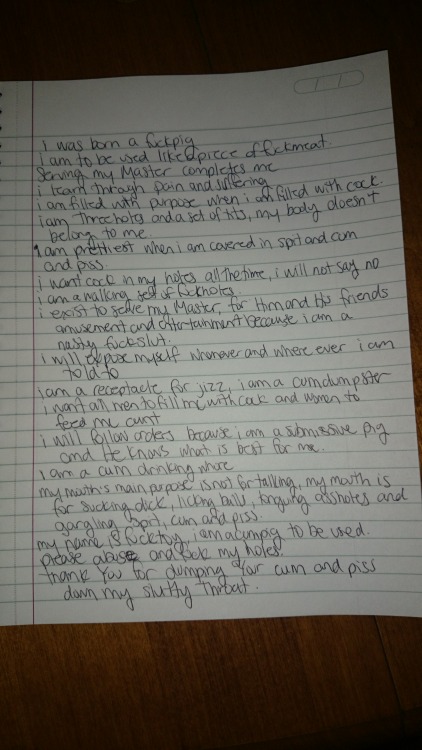 I was born a fuckpig
I am to be used like a piece of fuckmeat.
Serving my Master completes me
i learn through pain and suffering
i am filled with purpose when i am filled with cock.
i am three holes and a set of tits, my body doesn't
belong to me.
I am prettiest when i am covered in spit and cum
and piss.
i want cock in my holes all the time, i will not say no
i am a walking set of fuckholes.
i exist to serve my Master, for Him and His friends
amusement and entertainment because i am a
nasty fuckslut.
I will expose myself whomever and where ever i am
told to
i am a receptacle for jizz, i am a cumdumpster
i want all men to fill me with cock and women to
feed me cunt
i will follow orders because i am a submissive pig
and He knows what is best for me.
i am a cum drinking whore
my mouth's main purpose is not for talking, my mouth is
for sucking dick, licking balls, tonguing assholes and
gargling spit, cum and piss.
my name is fucktoy, i am a cumpig to be used.
please abuse and fuck my holes.
thank You for dumping Your cum and piss
down my slutty throat.